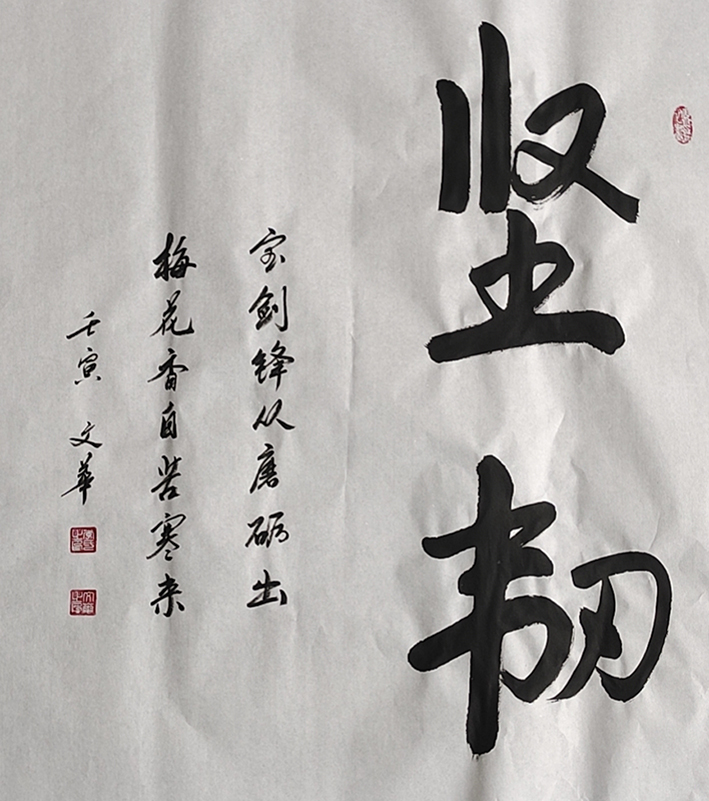 坚韧
宝剑锋从磨砺出
梅花香自苦寒来
壬寅 文华